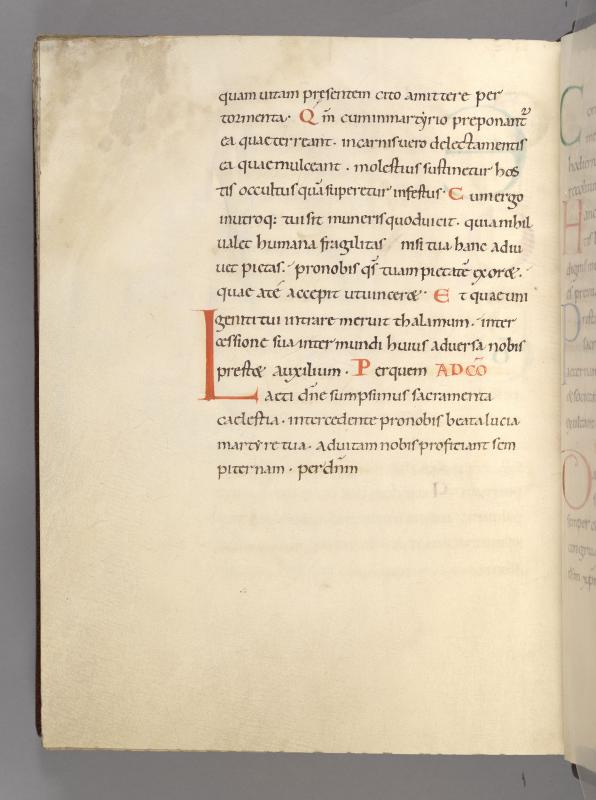 quam uitam presentem cito amittere per
tormenta. Qm̅ cum in martyrio preponant᷑
ea quae terreant. in carnis uero delectamentis
ea quae mulceant. molestius sustinetur hos
tis occultus quā superetur infestus. Cum ergo
in utroq: tui sit muneris quod uicit. quia nihil
ualet humana fragilitas nisi tua hanc adiu
uet pietas. pro nobis qs̄ tuam pietatē exoret.
quae a te accepit ut uinceret. Et quae uni
geniti tui intrare meruit thalamum. inter
cessione sua inter mundi huius aduersa nobis
prestet auxilium. Per quem AD CŌ
Laeti dn̄e sumpsimus sacramenta
caelestia. intercedente pro nobis beata lucia
martyre tua. ad uitam nobis proficiant sem
piternam. per dn̄m